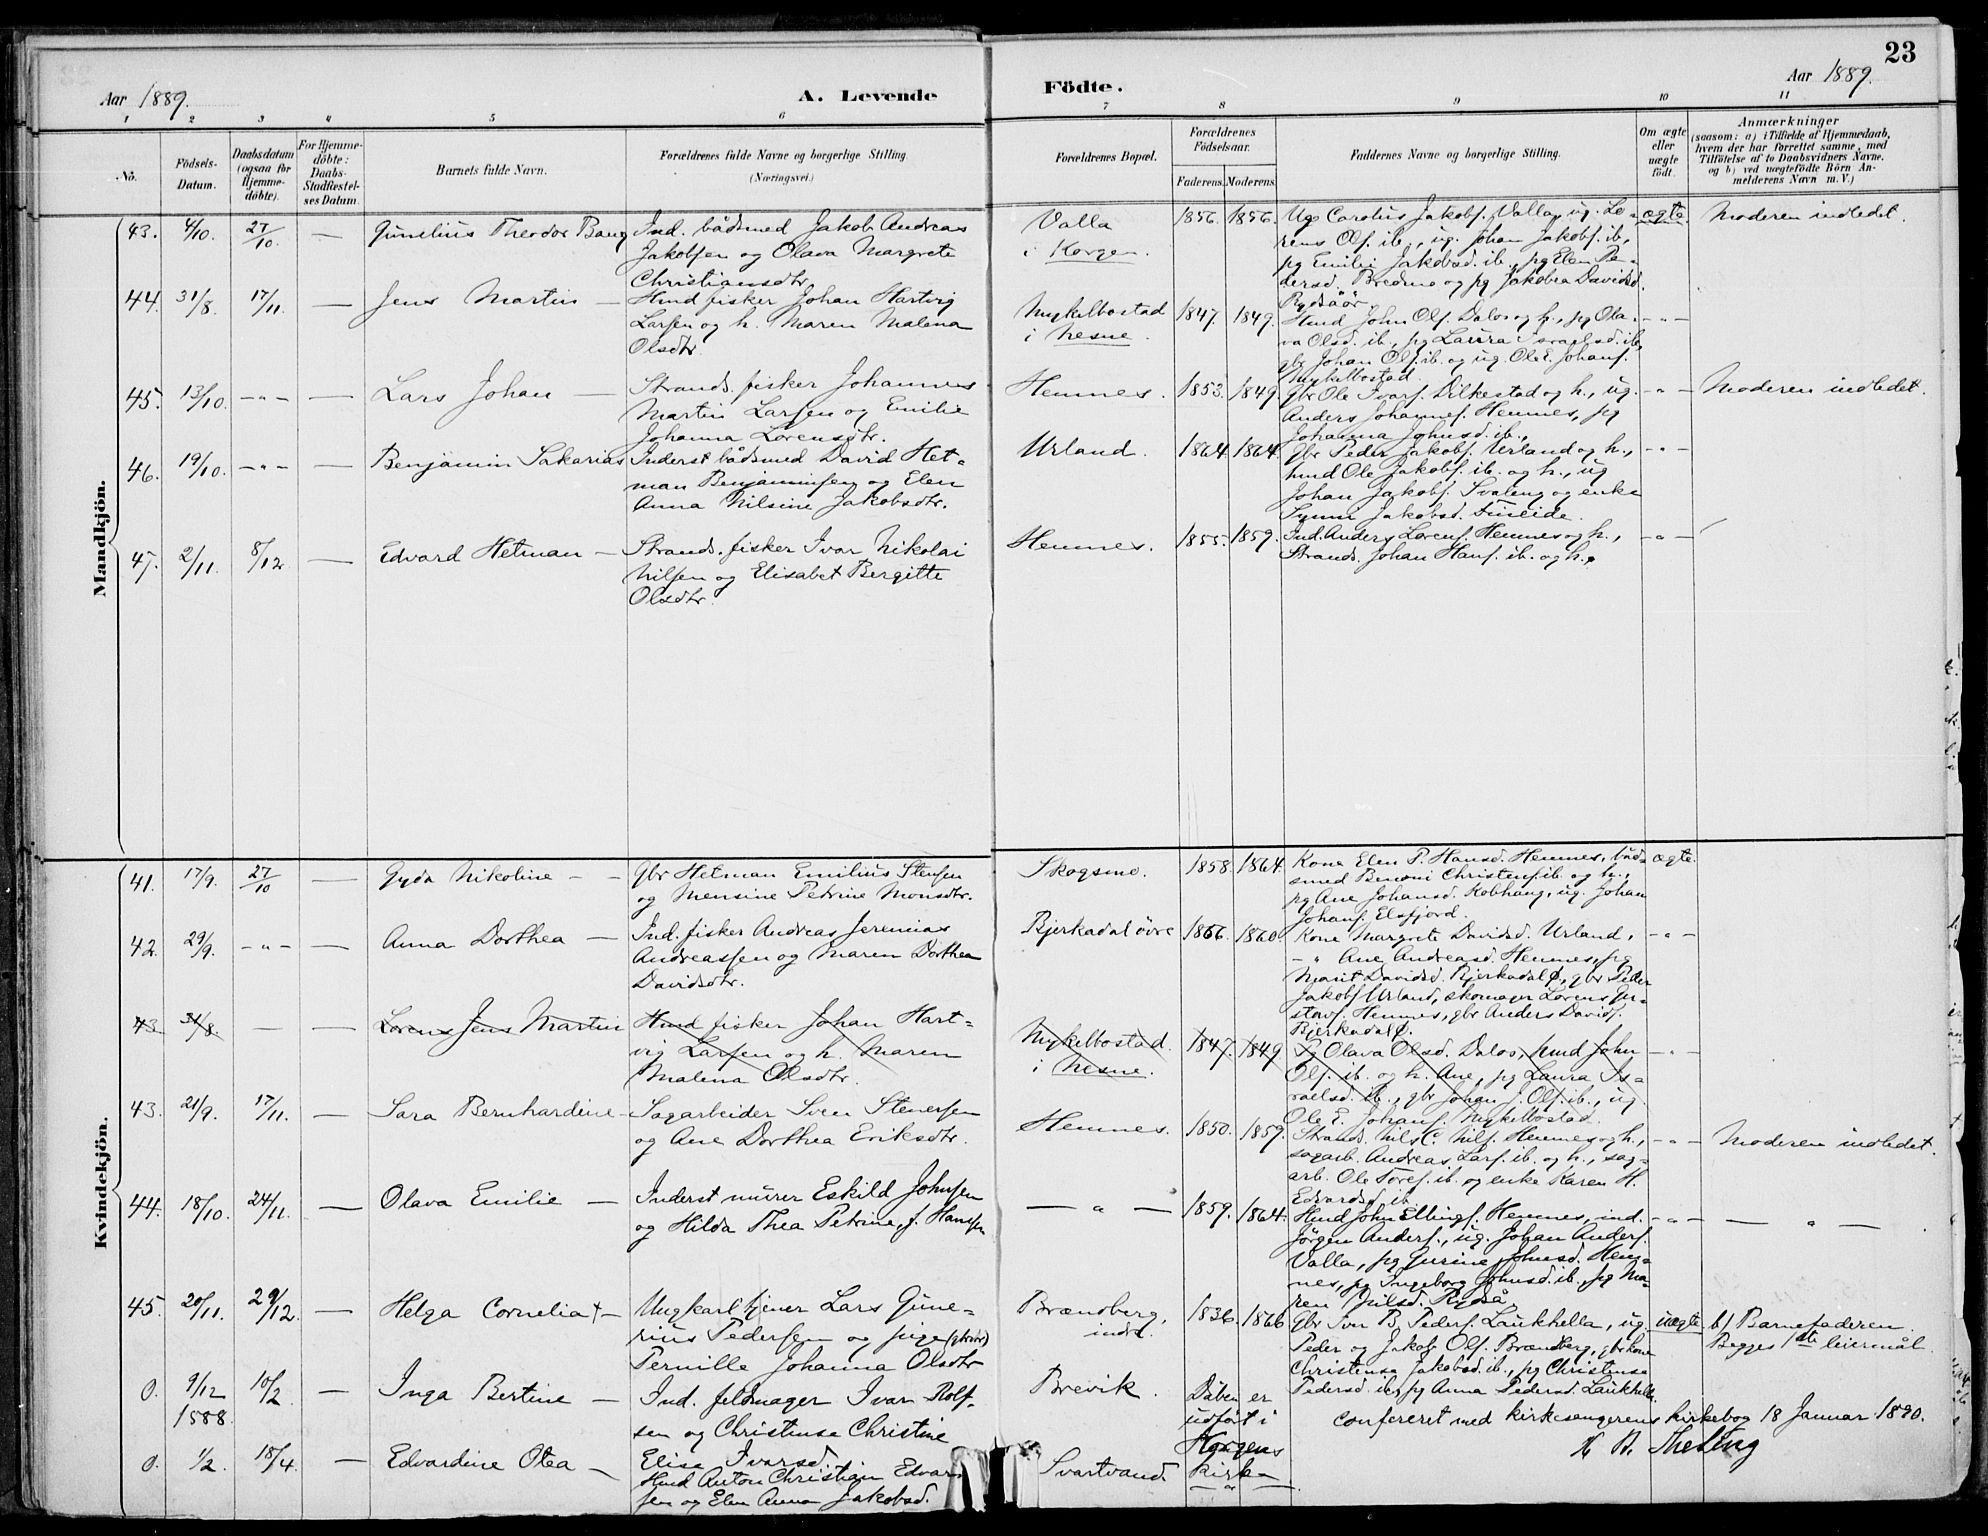 23
Aar 1889.
A. Levende
Födte.
Aar 1889.
1 2 3 4 5 6 7 8 9 10 11
No.
Födsels-
Datum.
Daabsdatum
(ogsaa for
Hjemme-
döbte).
For Hjemme-
döbte:
Daabs-
Stadfæstel-
ses Datum.
Barnets fulde Navn.
Forældrenes fulde Navne og borgerlige Stilling.
(Næringsvei.)
Forældrenes Bopæl.
Forældrenes
Födselsaar.
Faderens. Moderens.
Faddernes Navne og borgerlige Stilling.
Om ægte
eller
uægte
födt.
Anmærkninger
(saasom: a) i Tilfælde af Hjemmedaab,
hvem der har forrettet samme, med
Tilföielse af to Daabsvidners Navne.
og b) ved uægtefödte Börn An-
melderens Navn m. V.)
Mandkjön.
43. 4/10. 27/10. — Gunelius Theodor Bang
Ind. bådsmed Jakob Andreas
Jakobsen og Olava Margrete
Christiansdtr.
Valla
i Korgen.
1856. 1856.
Ug. Carolus Jakobs. Valla, ug. Lo-
rens Ols. ib., ug. Johan Jakobs. ib,
pg Emilie Jakobsd. ib., pg Elen Pe-
dersd. Bredmo og pg Jakobea Davidsd.
Rydsåör.
ægte.
Moderen indledet.
44. 31/8. 17/11. — Jens Martin —
Hmd fisker Johan Hartvig
Larsen og h. Maren Malena
Olsdtr.
Mykelbostad
i Nesne.
1847. 1849.
Hmd John Ols. Dalos og h., pg Ola-
va Olsd. ib., pg Laura Israelsd. ib,
gbr Johan Ols. ib. og ug. Ole E. Johans.
Mykelbostad.
- " -
45. 13/10. - " - — Lars Johan —
Strands. fisker Johannes
Martin Larsen og Emilie
Johanna Lorensdtr.
Hemnes.
1853. 1849.
Gbr Ole Ivars. Dilkestad og h., ug.
Anders Johannes. Hemnes, pg
Johanna Johnsd. ib.,
- " -
Moderen indledet.
46. 19/10. - " - — Benjamin Sakarias
Inderst bådsmed David Het-
man Benjaminsen og Elen
Anna Nilsine Jakobsdtr.
Urland.
1864. 1864.
Gbr Peder Jakobs. Urland og h.,
hmd Ole Jakobs. ib. og h., ug
Johan Jakobs. Svaleng og enke
Jakobsd.
- " -
47. 2/11. 8/12 — Edvard Hetman —
Strands. fisker Ivar Nikolai
Nilsen og Elisabet Bergitte
Olsdtr.
Hemnes.
1855. 1859.
Ind. Anders Lorens. Hemnes og h.,
Strands. Johan Hans. ib. og h.
- " -
Kvindekjön.
41. 17/9. 27/10 — Gyda Nikoline - -
Gbr Hetman Emilius Stensen
og Mensine Petrine Monsdtr.
Skogsmo.
1858. 1864.
Kone Elen P. Hansd. Hemnes, båd-
smed Benoni Christens. ib. og h.,
pg Ane Johansd. Kobhaug, ug. Johan
Johans. Elsfjord.
ægte.
42. 29/9. - " - — Anna Dorthea —
Ind. fisker Andreas Jeremias
Andreassen og Maren Dorthea
Davidsdtr.
Bjerkadal övre
1866. 1860.
Kone Margrete Davidsd. Urland,
- " Ane Andreasd. Hemnes, pg
Marit Davidsd. Bjerkadal Ø., gbr Peder
Jakobs. Urland, skomager Lorens Gu-
stavs. Hemnes, gbr Anders Davids.
Bjerkadal Ø.
- " -
43 31/8. — — Lorens Jens Martin
Hmd fisker Johan Hart-
vig Larsen og h. Maren
Malena Olsdtr.
Mykelbostad.
i Nesne.
1847. 1849
Pg Olava Olsd. Dalos, hmd John
Ols. ib. og h. Ane, pg Laura Is-
raelsd. ib., gbr Johan J. Ols. ib., ug.
Ole E. Johans. Mykelbostad.
- " -
43. 21/9. 17/11. — Sara Bernhardine —
Sagarbeider Sven Stenersen
og Ane Dorthea Eriksdtr.
Hemnes.
1850. 1859.
Strands. Nils C. Nils. Hemnes og h.,
sagarb. Andreas Lars. ib. og h., sag-
arb. Ole Tores. ib. og enke Karen H.
Edvardsd. ib.
- " -
Moderen indledet.
44. 18/10. 24/11. — Olava Emilie —
Inderst murer Eskild Johnsen
og Hilda Thea Petrine, f. Hansen
— " —
1859. 1864.
Hmd John Ellings. Hemnes, ind.
Jörgen Anders., ug. Johan Anders.
Valla, pg Gurine Johnsd. Hem-
nes, pg Ingeborg Johnsd. ib., pg Ma-
ren Nilsd. Rydså
- " -
— " —
45. 20/11. 29/12. — Helga Cornelia + —
Ungkarl tjener Lars Gune-
rius Pedersen og pige (gbrdtr)
Pernille Johanna Olsdtr
Brændberg,
indre.
1836. 1866
Gbr Iver B. Peders. Laukhella, ug.
Peder og Jakob Ols. Brændberg, gbrkone
Christense Jakobsd. ib., pg Christense
Pedersd. ib., pg Anna Pedersd. Laukhella
uægte
b) Barnefaderen.
Begges 1ste leiermål.
0. 9/12 1888. 10/2 — Inga Bertine —
Ind. feldmager Ivar Rolf-
sen og Christense Christine
Elise Ivarsd.
Brevik.
Dåben er
udfört i
Korgens
Kirke
Confereret med kirkesangerens kirkebog 18 Januar 1890.
0. 1/2. 18/4. — Edvardine Otea —
Hmd Anton Christian Edvar-
sen og Elen Anna Jakobsd.
Svartvand
— " —